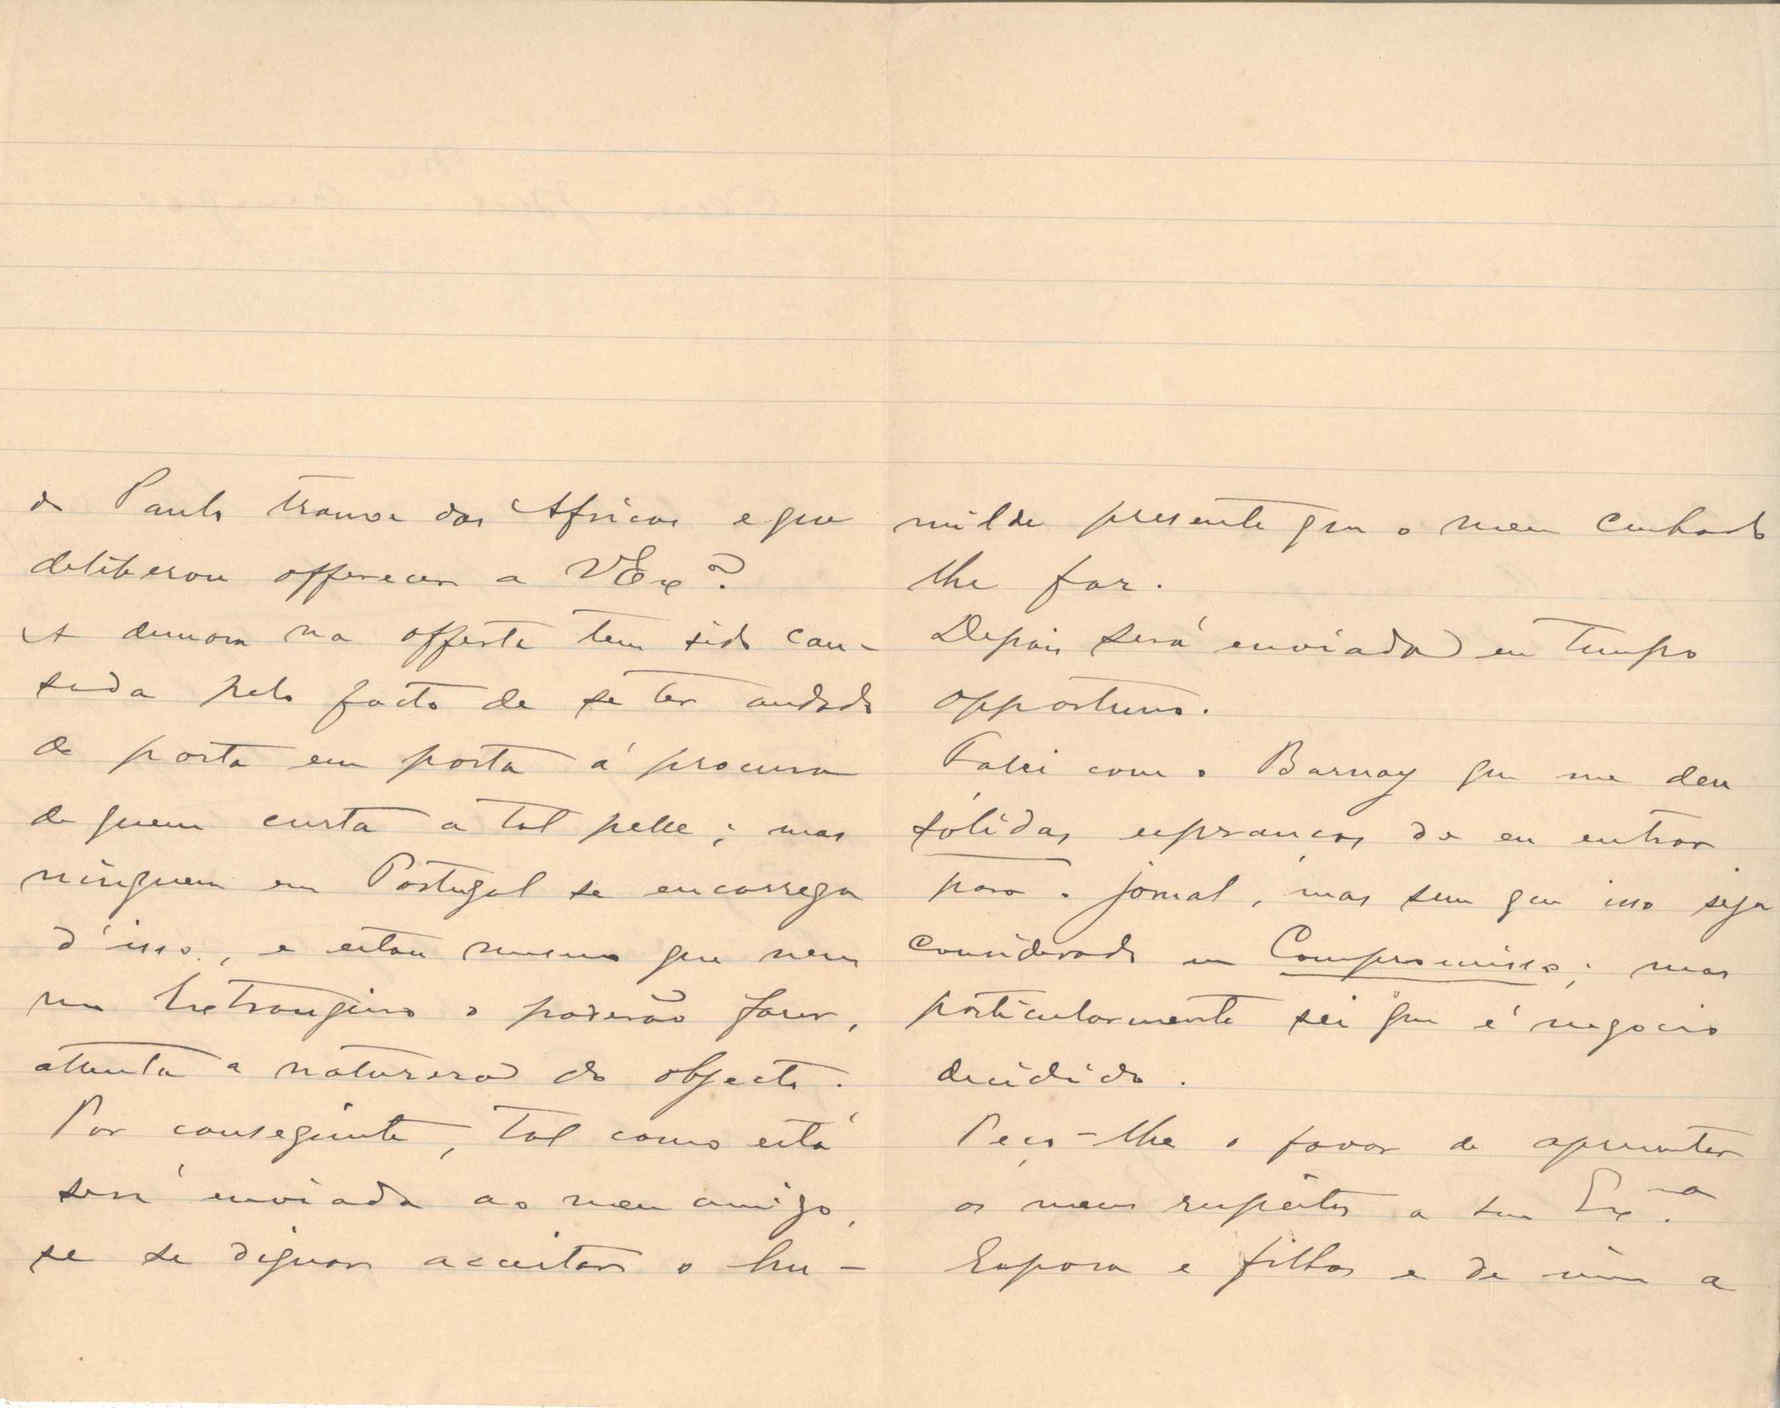 de Paula trouxe das Africas e que
deliberou offerecer a VExª?
A demora na offerta tem sido cau-
sada pelo facto de se ter andado
de porta em porta á procura
de quem curta a tal pelle; mas
ninguem em Portugal se encarrega
d'isso, e estou mesmo que nem
no Extrangeiro o poderão fazer,
attenta a natureza do objecto.
Por conseguinte, tal como está
será enviada ao meu amigo,
se se dignar acceitar o hu-
milde presente que o meu cunhado
lhe faz.
Depois será enviada em tempo
opportuno.
Falei com o Burnay que me deu
sólidas esperanças de eu entrar
para o jornal, mas sem que isso seja
considerado um Compromisso; mas
particularmente sei que é negocio
decidido.
Peço-lhe o favor de apresentar
os meus respeitos a sua Exª
Esposa e filhos e de mim a